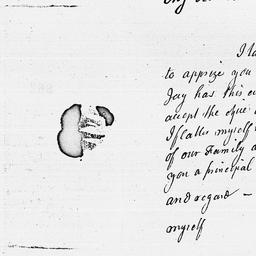 I ta
to apprize you
Jay has this e
accept the office
I flatter myself
of our Family a
you a principal
and regard —
myself